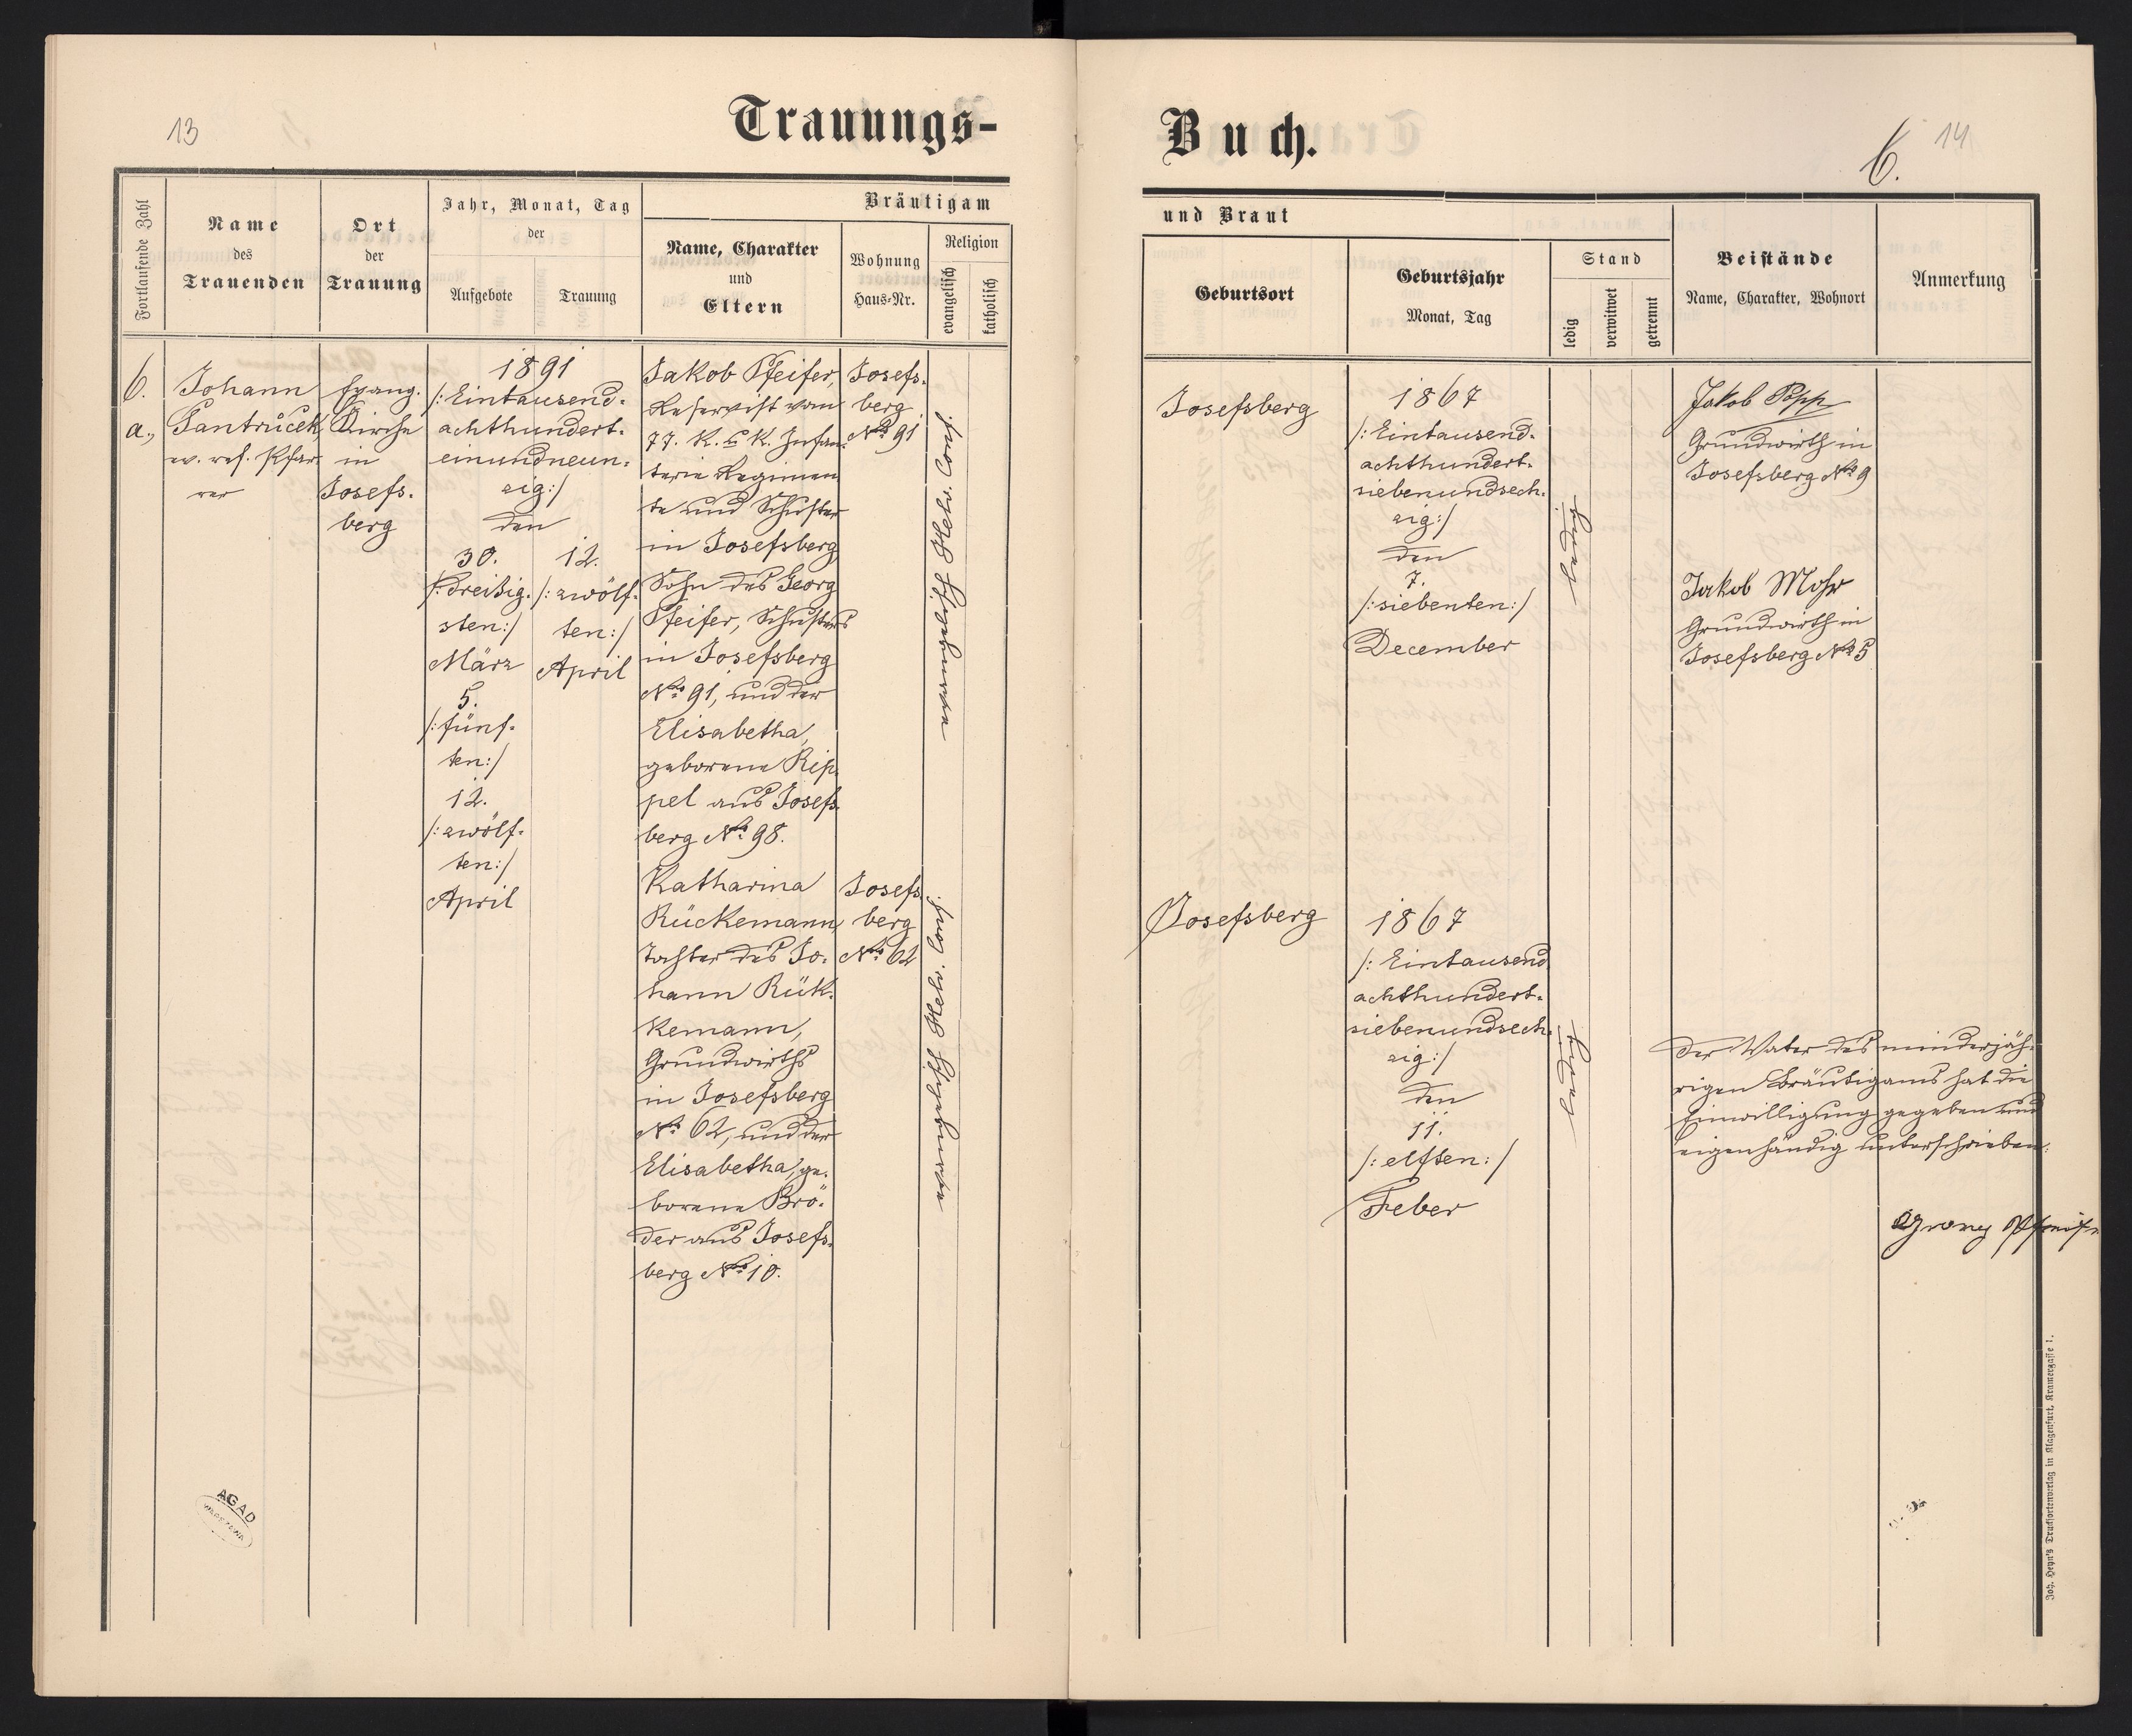 13
Trauungs-
Fortlaufende Zahl
Name
des
Trauenden
Ort
der
Trauung
Jahr, Monat, Tag
der
Aufgebote
Trauung
Bräutigam
Name, Charakter
und
Eltern
Wohnung
Haus-Nr.
Religion
evangelisch
katholisch
6.
a.,
Johann
Jantrůček,
ev. ref. Pfar-
rer
Evang.
Kirche
in
Josefs-
berg
1891
/:Eintausend-
achthundert-
einundneun-
zig:/
den
30.
/:dreißig-
sten:/
März
5.
/:fünf-
ten:/
12.
/:zwölf-
ten:/
April
12.
/:zwölf-
ten:/
April
Jakob Pfeifer,
Reservist vom
77. K. & K. Infan-
terie Regimen-
te und Schuster
in Josefsberg
Sohn des Georg
Pfeifer, Schusters
in Josefsberg
No 91, und der
Elisabetha,
geborene Rip-
pel aus Josefs-
berg No 98.
Josefs-
berg
No 91
evangelisch Helv. Conf.
Katharina
Rückemann,
Tochter des Jo-
hann Rük-
kemann,
Grundwirths
in Josefsberg
No 62, und der
Elisabetha, ge-
borene Brö-
der aus Josefs-
berg No 10.
Josefs-
berg
No 62
evangelisch Helv. Conf.
AGAD
WARSZAWA
Buch.
6.
14
und Braut
Geburtsort
Geburtsjahr
Monat, Tag
Stand
ledig
verwitwet
getrennt
Beistände
Name, Charakter, Wohnort
Anmerkung
Josefsberg
1867
/:Eintausend-
achthundert-
siebenundsech-
zig:/
den
7.
/:siebenten:/
December
ledig
Jakob Popp
Grundwirth in
Josefsberg No 9
Jakob Mohr
Grundwirth in
Josefsberg No 5
Josefsberg
1867
/:Eintausend
achthundert-
siebenundsech-
zig:/
den
11.
/:elften:/
Feber
ledig
Der Vater des minderjäh-
rigen Bräutigams hat die
Einwilligung gegeben und
eigenhändig unterschrieben:
Georg Pfeifer
Joh. Heyn's Drucksortenverlag in Klagenfurt, Kramergasse 1.